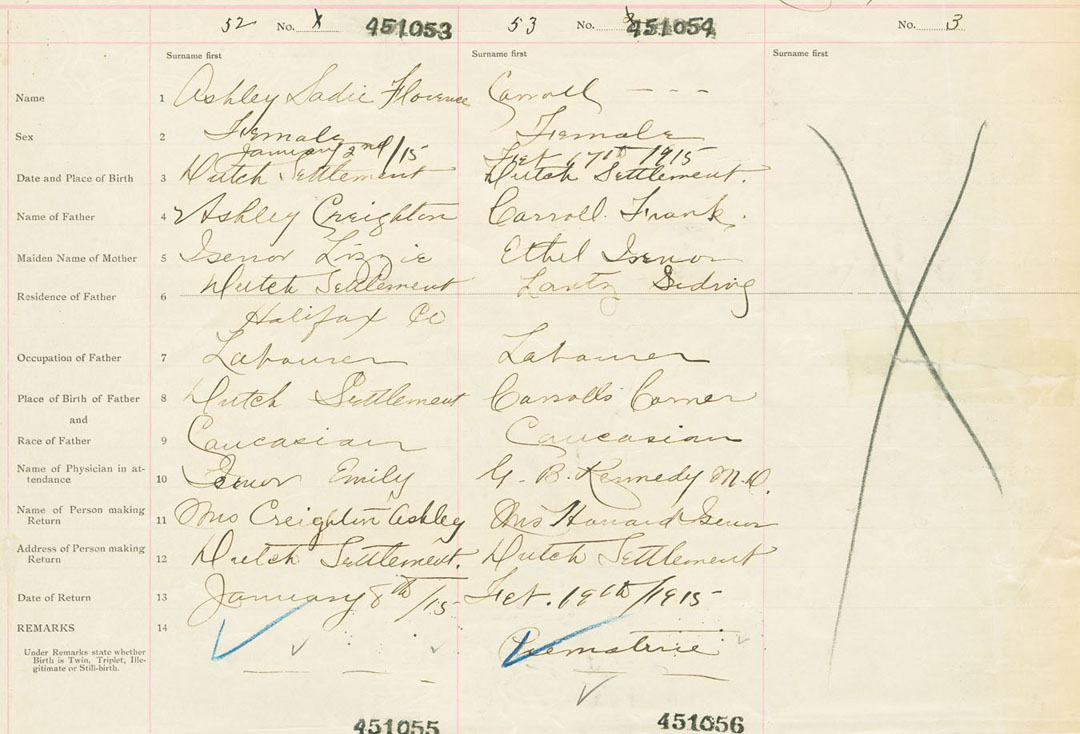 52 No. 1 451053 53 No. 2 451054 No. 3
Surname first Surname first Surname first
Name 1 Ashley Sadie Florence Carroll - - -
Sex 2 Female Female
January 2nd/15 Feb 17th 1915
Date and Place of Birth 3 Dutch Settlement Dutch Settlement.
Name of Father 4 Ashley Creighton Carroll. Frank.
Maiden Name of Mother 5 Isenor Lizzie Ethel Isenor
Dutch Settlement Lantz Siding
Residence of Father 6
Halifax Co
Occupation of Father 7 Labourer Labourer
Place of Birth of Father 8 Dutch Settlement Carrolls Corner
and
Race of Father 9 Caucasian Caucasian
Name of Physician in at-
tendance 10 Isenor Emily G. B. Kennedy M.D.
Name of Person making
Return 11 Mrs Creighton Ashley Mrs Howard Isenor
Address of Person making
Return 12 Dutch Settlement. Dutch Settlement
Date of Return 13 January 8th/15 Feb. 19th/1915
REMARKS 14
Under Remarks state whether
Birth is Twin, Triplet, Ille-
gitimate or Still-birth.
Prematurie
451055 451056